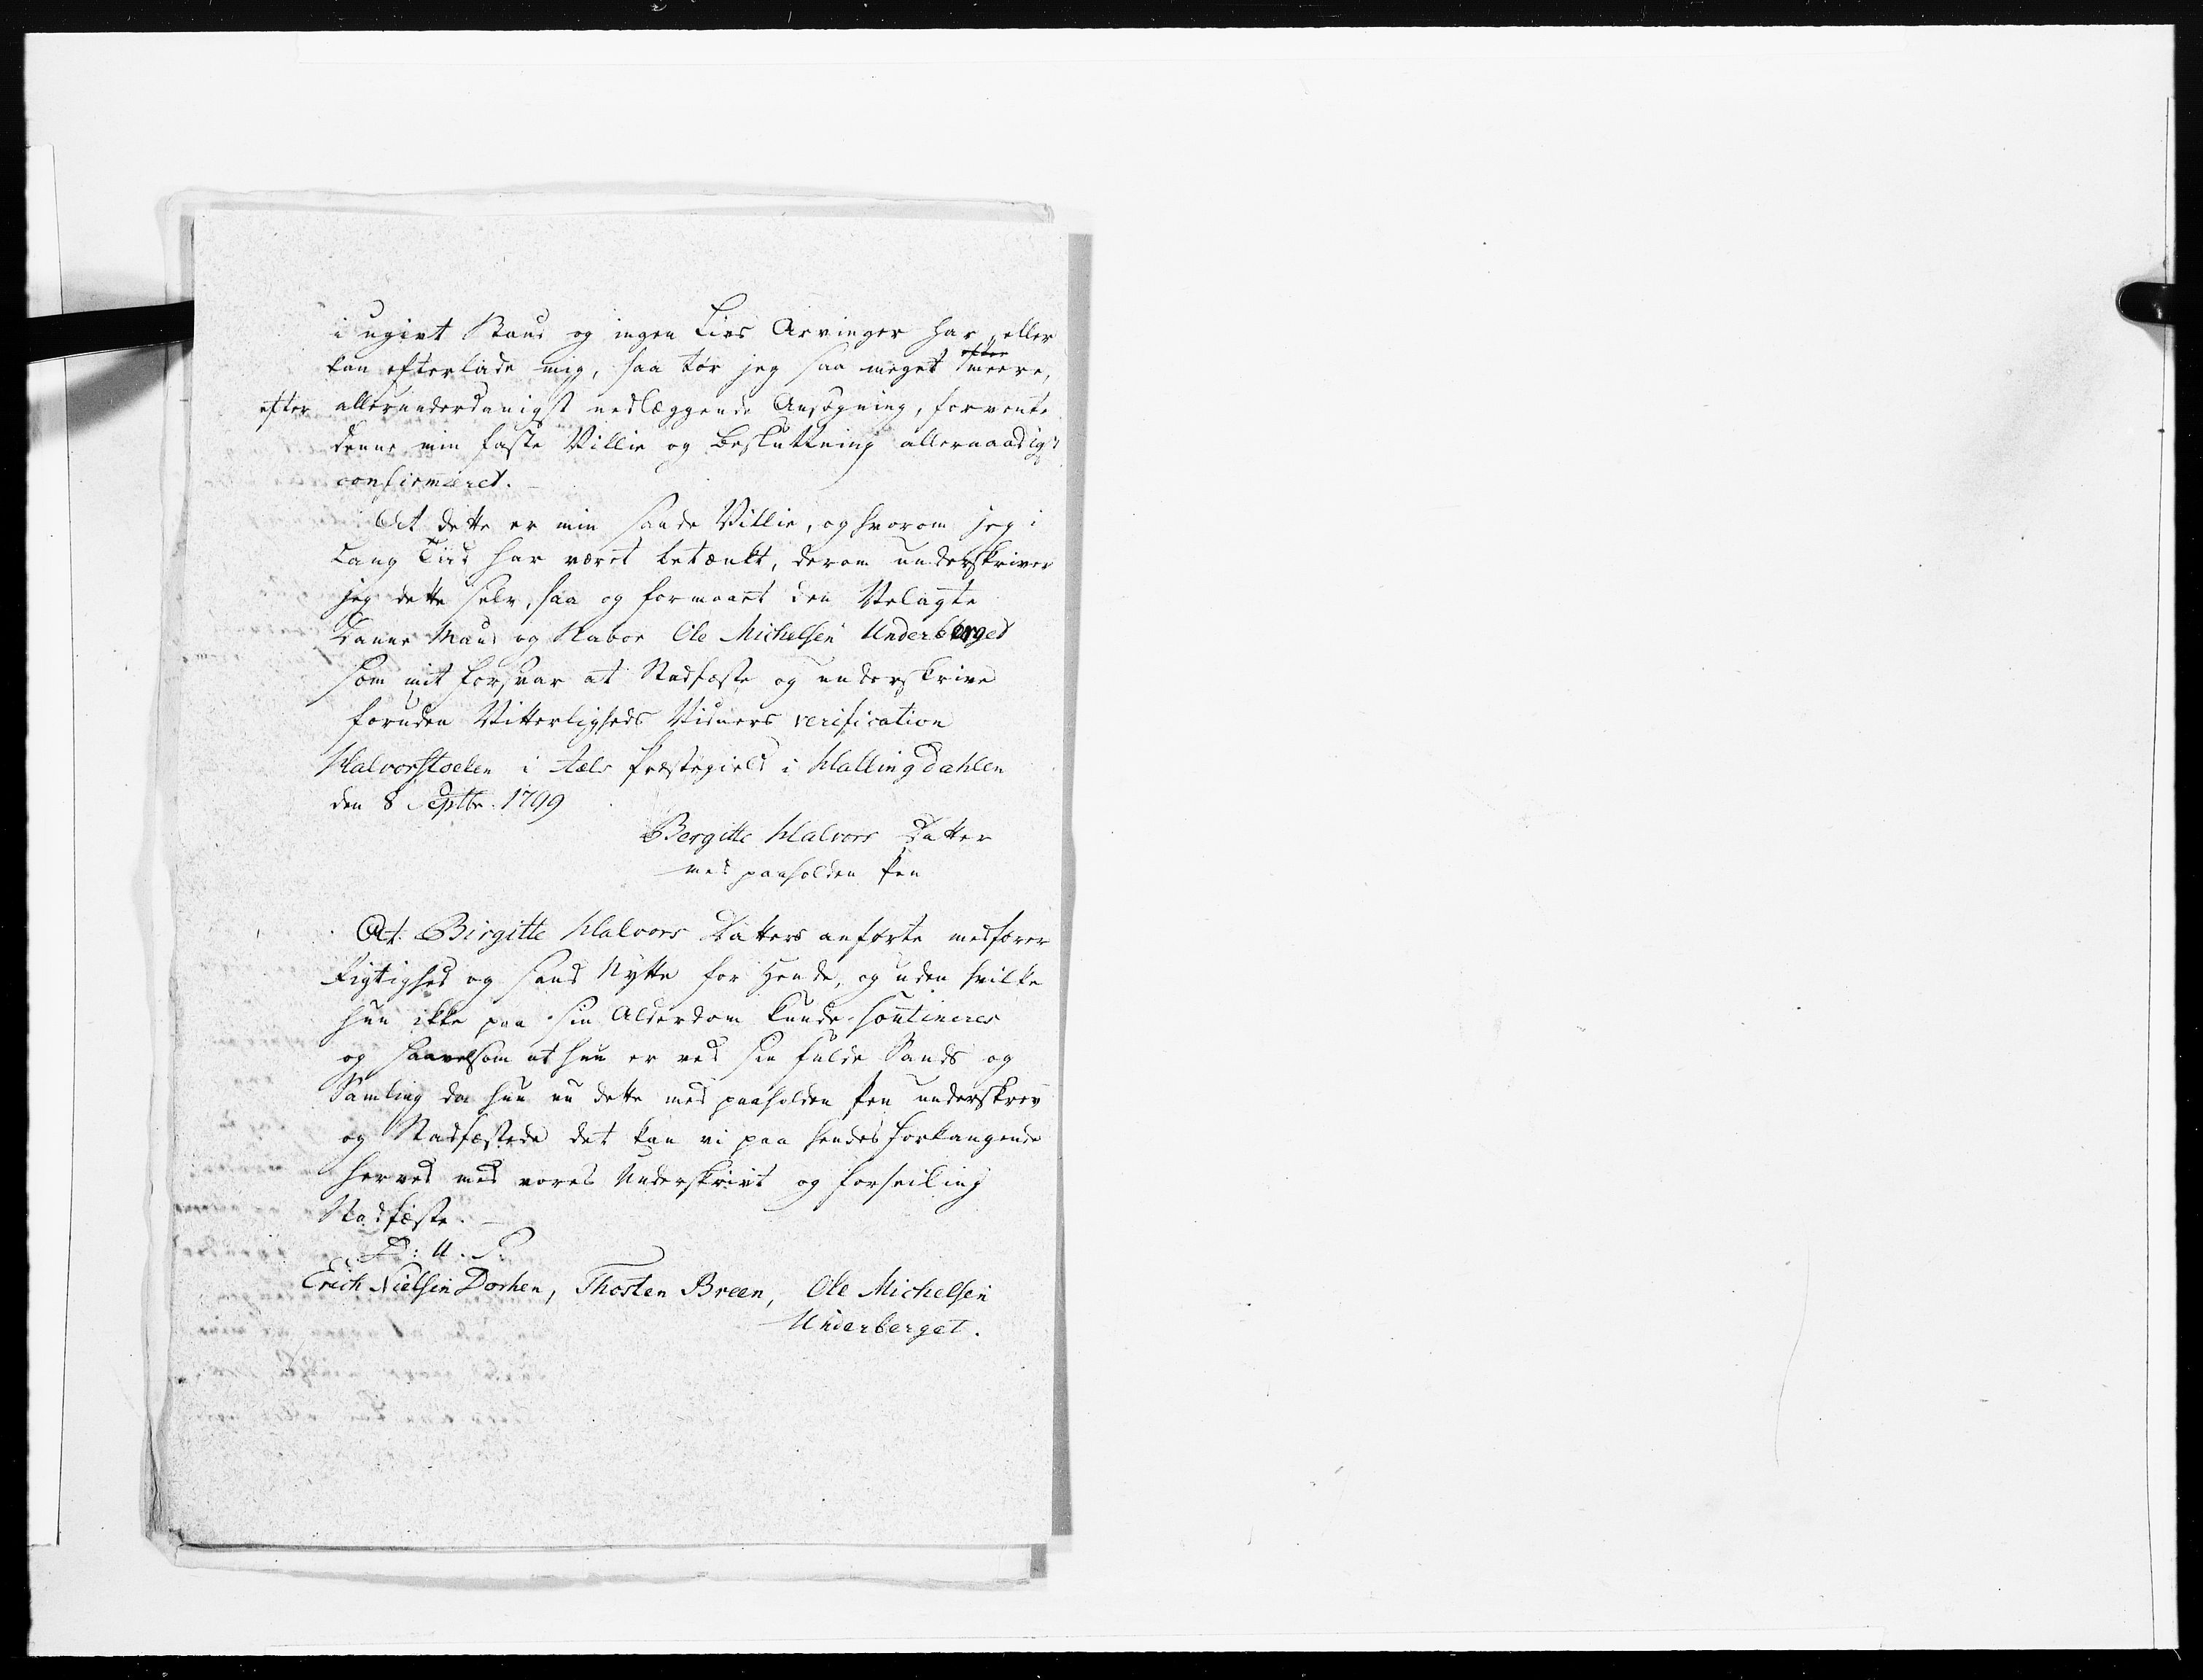 i ugivt Stand og ingen Livs Arvinger har, eller
kan efterlade mig, saa tør jeg saa meget meere,
efter allerunderdanigst nedlæggende Ansøgning, forvente
denne min faste Villie og Beslutning allernaadigst
confirmeret.
At dette er min sande Villie, og hvorom jeg i
Lang Tiid har været betænkt, derom underskriver
jeg dette selv, saa og formaaet den Velagte
Danne Mand og Naboe Ole Michelsen Underberget
som mit forsvar at Stadfæste og underskrive
foruden Vitterligheds Vidners verification
Halvorstoelen i Aals Præstegield i Hallingdahlen
den 8 Septbr. 1799
Bergitte Halvors Datter
med paaholden Pen
At Birgitte Halvors Datters anførte medfører
Rigtighed og sand Nytte for Hende, og uden hvilke
hun ikke paa sin Alderdom kunde soutineres
og saavelsom at hun er ved sin fulde Sands og
Samling da hun nu dette med paaholden Pen underskrev
og Stadfæstede det kan vi paa hendes Forlangende
herved med vores Underskrivt og Forseiling
Stadfæste.
D: U. S.
Erich Nielsen Dorhen, Thosten Breen, Ole Michelsen
Underberget.